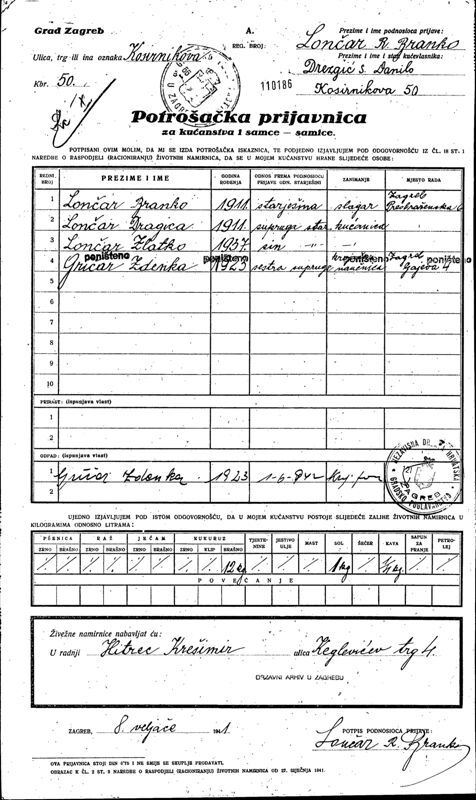 Grad Zagreb
A.
REG. BROJ:
110186
Prezime i ime podnosioca prijave:
Lončar R. Branko
Ulica, trg ili ina oznaka Kosirnikova
Prezime i ime kućevlasnika:
Drezgić S. Danilo
Kbr. 50.
Kosirnikova 50
Potrošačka prijavnica
za kućanstva i samce – samice.
POTPISANI OVIM MOLIM, DA MI SE IZDA POTROŠAČKA ISKAZNICA, TE PODJEDNO IZJAVLJUJEM POD ODGOVORNOŠĆU IZ ČL. 18 ST. 1
NAREDBE O RASPODJELI (RACIONIRANJU) ŽIVOTNIH NAMIRNICA, DA SE U MOJEM KUĆANSTVU HRANE SLIJEDEĆE OSOBE:
REDNI BROJ PREZIME I IME GODINA ROĐENJA ODNOS PREMA PODNOSIOCU PRIJAVE ODN. STARJEŠINI ZANIMANJE MJESTO RADA
1 Lončar Branko 1911. starješina slagar Zagreb
2 Lončar Dragica 1911. supruga star. kućanica
3 Lončar Zlatko 1937. sin
4 Gričar Zdenka 1923 sestra supruge Zagreb Gajeva 4
poništeno poništeno poništeno poništeno
5
6
7
8
9
10
PRIRAST: (ispunjava vlast)
1
2
OTPAD: (ispunjava vlast)
1 Gričar Zdenka 1923 1-6-942
2
NEZAVISNA DRŽAVA HRVATSKA
GRADSKO POGLAVARSTVO
ZAGREB
UJEDNO IZJAVLJUJEM POD ISTOM ODGOVORNOŠĆU, DA U MOJEM KUĆANSTVU POSTOJE SLIJEDEĆE ZALIHE ŽIVOTNIH NAMIRNICA U
KILOGRAMIMA ODNOSNO LITRAMA:
PŠENICA RAŽ JEČAM KUKURUZ TJESTENINE JESTIVO ULJE MAST SOL ŠEĆER KAVA SAPUN ZA PRANJE PETROLEJ
ZRNO BRAŠNO ZRNO BRAŠNO ZRNO BRAŠNO ZRNO KLIP BRAŠNO
12 kg 1 kg
POVEĆANJE
Živežne namirnice nabavljat ću:
U radnji Hitrec Krešimir ulica Keglevićev trg 4.
DRŽAVNI ARHIV U ZAGREBU
ZAGREB, 8. veljače 1941.
POTPIS PODNOSIOCA PRIJAVE:
Lončar R. Branko
OVA PRIJAVNICA STOJI DIN 0·75 I NE SMIJE SE SKUPLJE PRODAVATI.
OBRAZAC K ČL. 2 ST. 3 NAREDBE O RASPODJELI (RACIONIRANJU) ŽIVOTNIH NAMIRNICA OD 27. SIJEČNJA 1941.